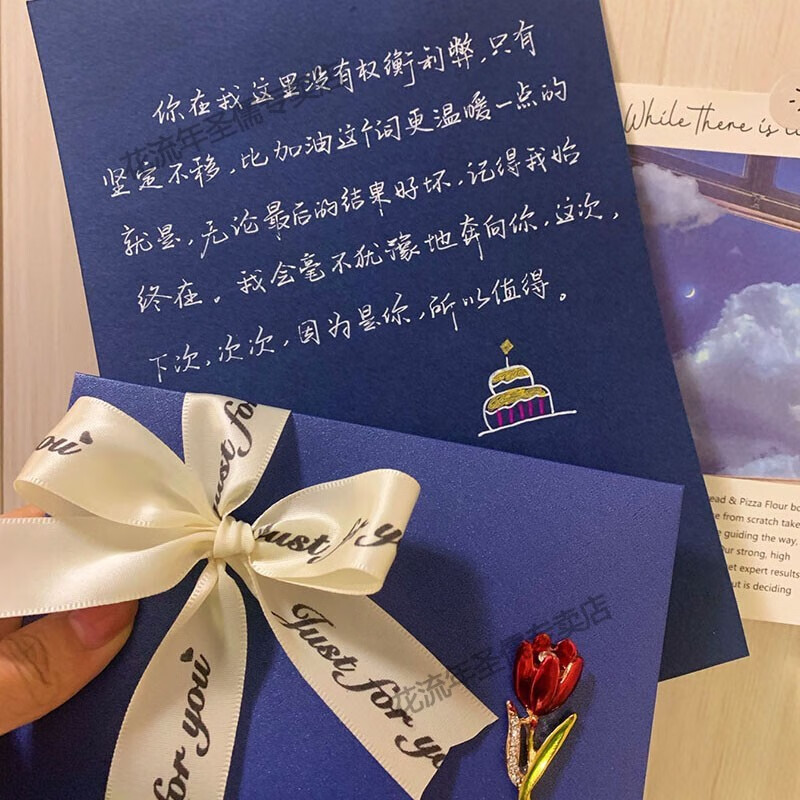 你在我这里没有权衡利弊，只有
坚定不移，比加油这个词更温暖一点的
就是，无论最后的结果好坏，记得我始
终在。我会毫不犹豫地奔向你，这次，
下次，次次，因为是你，所以值得。
花流年圣儒专卖店
While There is
ead & Pizza Flour
from scratch take
guiding the way,
ur strong, high
et expert results
ut is deciding
you
Just for
Just f y
Just for y
for you
花流年圣儒专卖店